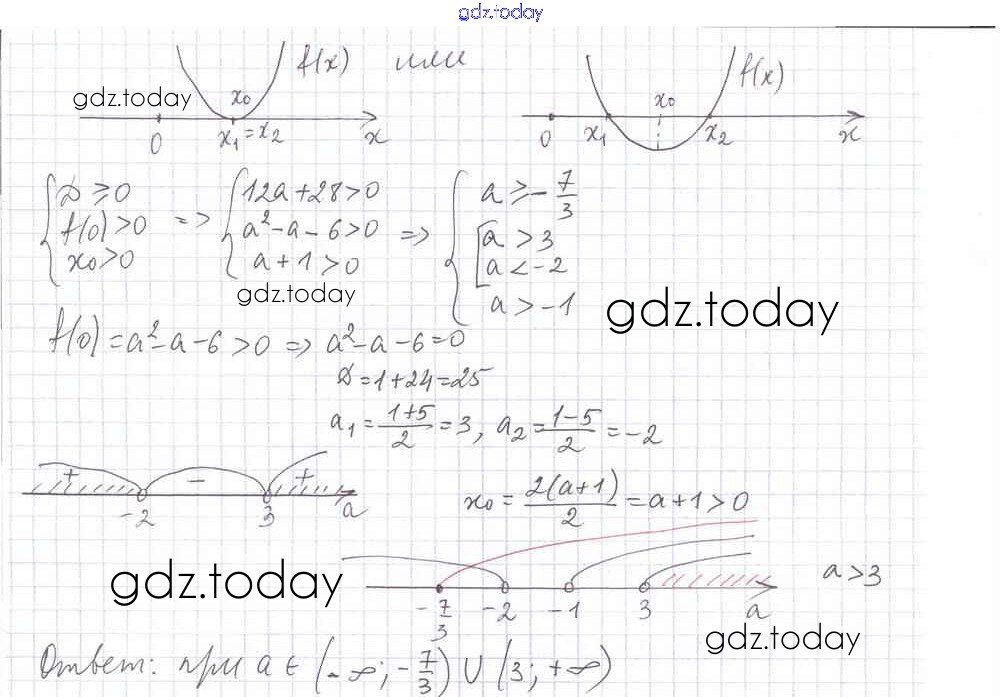 gdz.today
f(x) или f(x)
gdz.today x₀ x₀
0 x₁=x₂ x 0 x₁ x₂ x
{ D ≥ 0 => { 12a+28>0 => { a ≥ -7/3
f(0)>0 a²-a-6>0 [ a > 3
x₀>0 a+1>0 a < -2
a > -1
gdz.today
gdz.today
f(0)=a²-a-6>0 => a²-a-6=0
D=1+24=25
a₁ = (1+5)/2 = 3, a₂ = (1-5)/2 = -2
+ - +
-2 3 a
x₀ = 2(a+1)/2 = a+1>0
gdz.today
a>3
-7/3 -2 -1 3 a
gdz.today
Ответ: при a ∈ (-∞; -7/3) ∪ (3; +∞)